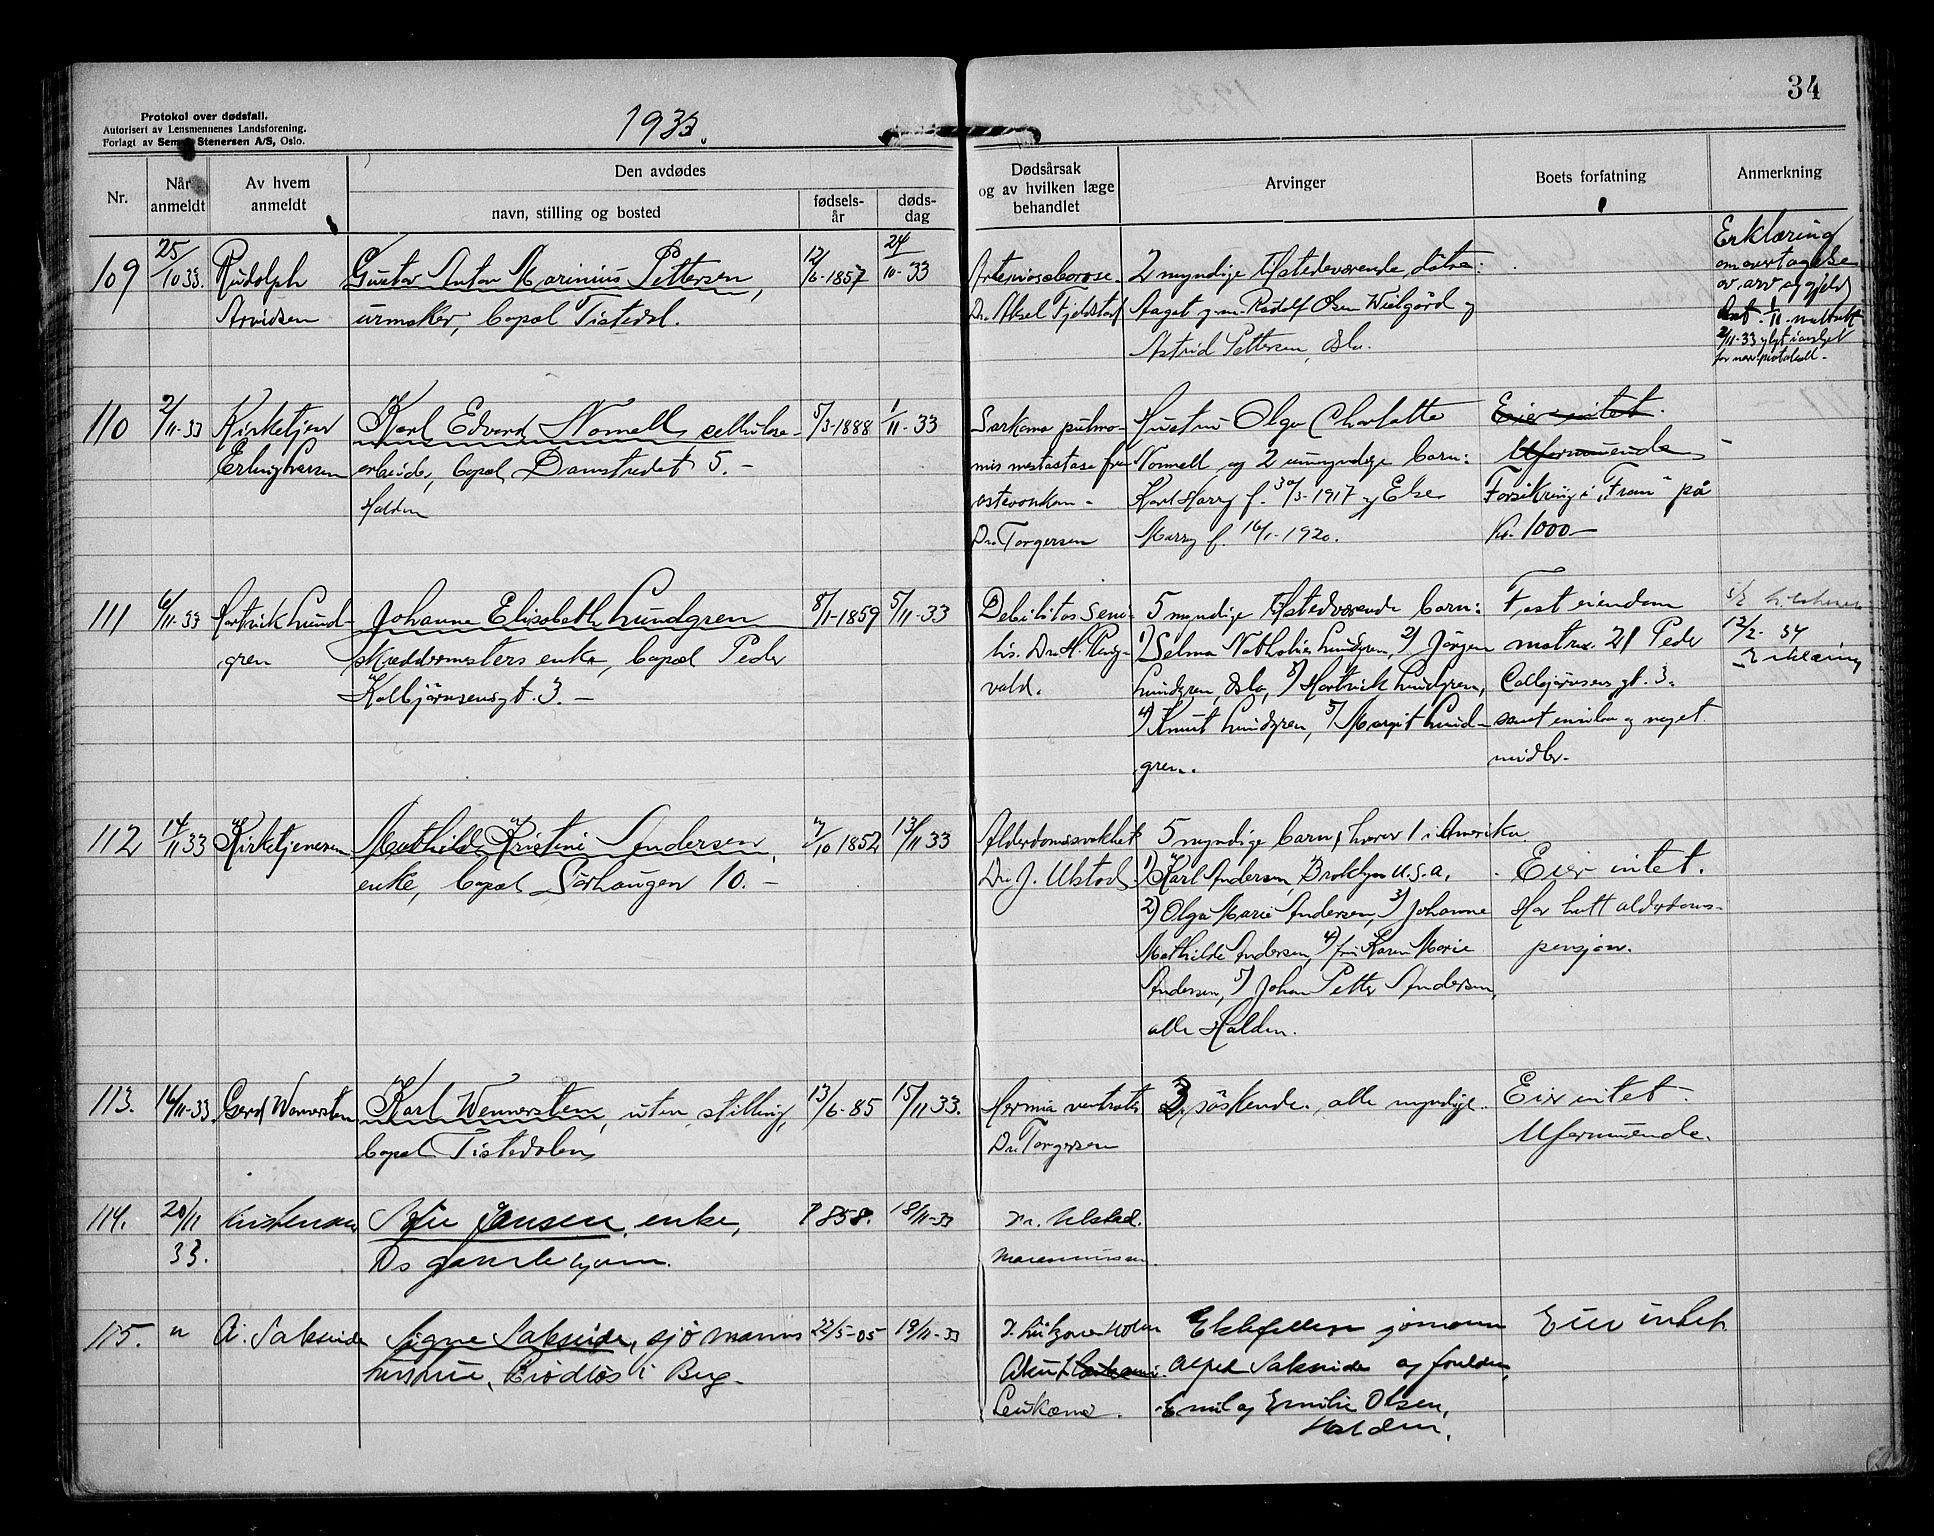 34
Protokol over dødsfall.
Autorisert av Lensmennenes Landsforening.
Forlagt av Sem & Stenersen A/S, Oslo.
1933.
Nr.
Når anmeldt
Av hvem anmeldt
Den avdødes
navn, stilling og bosted
fødsels-år
døds-dag
Dødsårsak og av hvilken læge behandlet
Arvinger
Boets forfatning
Anmerkning
109
25/10 33.
Rudolph
Arvidsen
Gustav Anton Marinius Pettersen,
urmaker, bopæl Tistedal.
12/6-1857
24/10-33
Dr. Aksel Fjeldstad
2 myndige tilstedeværende døtre:
Aagot g.m. Rudolf Olsen Wielgård og
Astrid Pettersen, Oslo.
Erklæring
om overtagelse
av arv og gjeld
110
2/11-33
Kirketjener
Erling Larsen
Karl Edvard Normell, cellulose-
arbeider, bopæl Damstredet 5. -
Halden
5/3-1888
1/11-33
Sarkoma pulmo-
nis metastase fra
Dr. Torgersen
Hustru Olga Charlotte
Normell og 2 umyndige barn:
Karl Harry f. 30/3-1917 og Else
Marry f. 16/1-1920.
Eier intet.
Uformuende
Forsikring i "Fram" på
kr. 1000-
111
6/11-33
Hartvik Lund-
gren
Johanne Elisabeth Lundgren
skreddermesters enke, bopæl Peder
Kolbjørnsensgt. 3. -
8/11-1859
5/11-33
Debilitas seni-
lis. Dr. H. Ring-
vold.
5 myndige tilstedeværende barn:
1) Selma Nathalie Lundgren, 2) Jørgen
Lundgren, Oslo, 3) Hartvik Lundgren,
4) Knut Lundgren, 5) Margit Lund-
gren.
Fast eiendom
matr.nr. 21 Peder
Colbjørnsens gt. 3.
samt innbo og noget
midler.
12/2-34
Erklæring
112
14/11 33
Kirketjeneren
Mathilde Kristine Andersen,
enke, bopæl Sørhaugen 10. -
7/10 1852
13/11 33
Alderdomssvakhet
Dr. J. Ulstad
5 myndige barn, hvorav 1 i Amerika
1) Karl Andersen, Broklyn U.S.A.
2) Olga Marie Andersen, 3) Johanne
Mathilde Andersen, 4) frk Karen Marie
Andersen, 5) Johan Petter Andersen,
alle Halden.
Eier intet.
Har hatt alderdoms-
pensjon.
113.
16/11-33.
Gerd Wennersten
Karl Wennersten, uten stilling,
bopæl Tistedalen
13/6-85
15/11 33.
Hernia ventralis
Dr. Torgersen
3 søskende, alle myndige.
Eier intet.
Uformuende.
114.
20/11
33.
Kristensen
Jensen, enke,
Os gamlehjem.
1858.
18/11-33
Dr. Ulstad.
115.
"
A. Saksvide
Signe Saksvide, sjømanns
hustrue, Brødløs i Berg.
22/5-05
19/11-33
Akut
Leukæmi.
Ektefellen sjømann
Alfred Saksvide og foreldre,
Emil og Emilie Olsen,
Halden.
Eier intet.